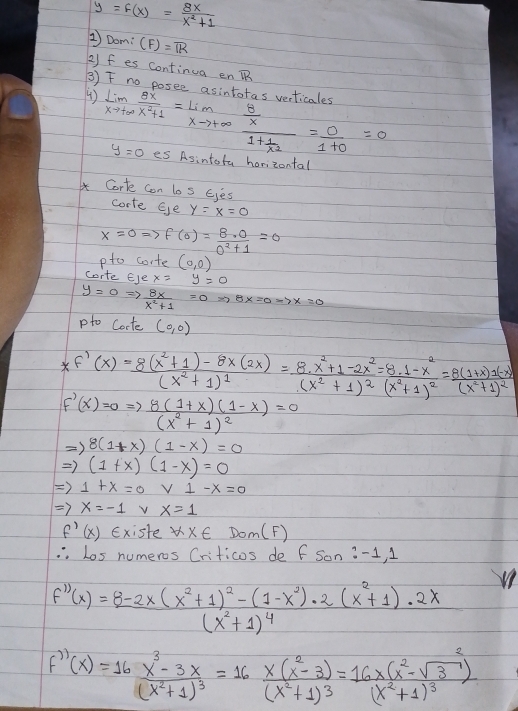 y = f(x) = 8x / x²+1
1) Domi (F) = ℝ
2) f es continua en ℝ
3) F no posee asintotas verticales
4) Lim x→+∞ 8x / x²+1 = Lim x→+∞ 8/x / 1+1/x² = 0 / 1+0 = 0
y=0 es Asintota horizontal
* Corte con los Ejes
corte Eje y = x = 0
x = 0 => f(0) = 8.0 / 0²+1 = 0
pto corte (0,0)
corte Eje x = y = 0
y = 0 => 8x / x²+1 = 0 => 8x=0 => x=0
pto corte (0,0)
* f'(x) = 8(x²+1) - 8x(2x) / (x²+1)² = 8.x²+1-2x² / (x²+1)² = 8.1-x² / (x²+1)² = 8(1+x)1(-x) / (x²+1)²
f'(x)=0 => 8(1+x)(1-x) / (x²+1)² = 0
=> 8(1+x) (1-x) = 0
=> (1+x) (1-x) = 0
=> 1+x=0 v 1-x=0
=> x=-1 v x=1
f'(x) Existe ∀x∈ Dom(F)
∴ Los numeros Criticos de f son : -1,1
f''(x) = 8-2x(x²+1)² - (1-x²).2(x²+1).2x / (x²+1)⁴
f''(x) = 16 x³-3x / (x²+1)³ = 16 x(x²-3) / (x²+1)³ = 16x(x²-√3²) / (x²+1)³